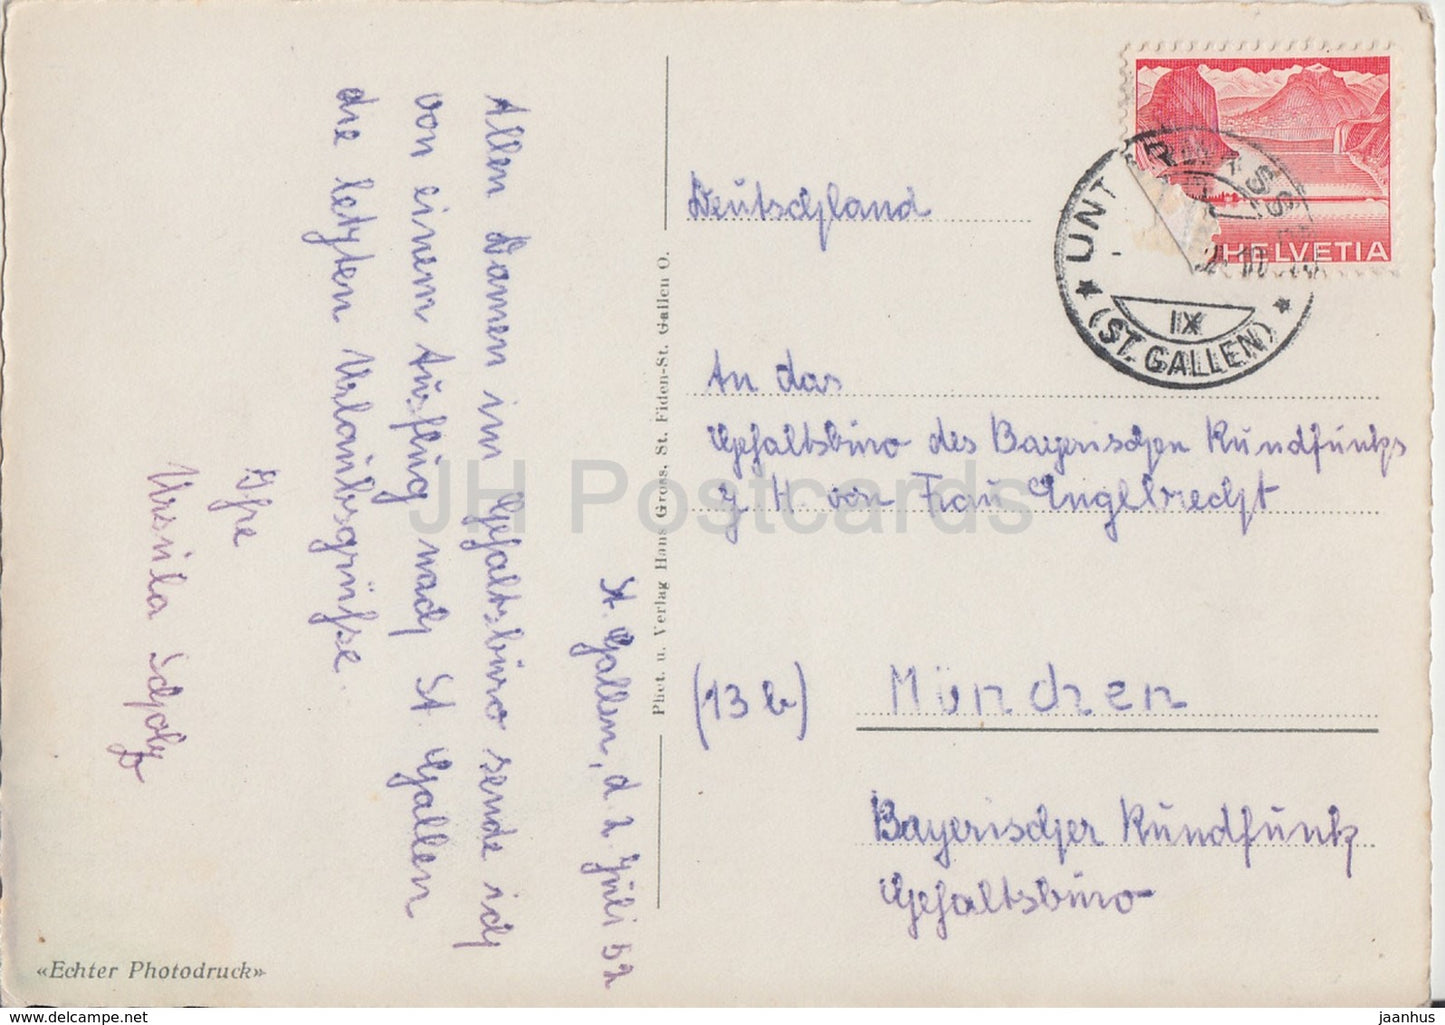 St. Gallen, d. 2. Juli 52
Allen Damen im Gehaltsbüro sende ich
von einem Ausflug nach St. Gallen
die letzten Urlaubsgrüße.
Ihre
Ursula Scholz
«Echter Photodruck»
Phot. u. Verlag Hans Gross, St. Fiden-St. Gallen O.
HELVETIA
IX
(ST. GALLEN)
Deutschland
An das
Gehaltsbüro des Bayerischen Rundfunks
z. H. von Frau Englbrecht
(13 b) München
Bayerischer Rundfunk
Gehaltsbüro
JH Postcards
jaanhus
https://www.jhpostcards.com